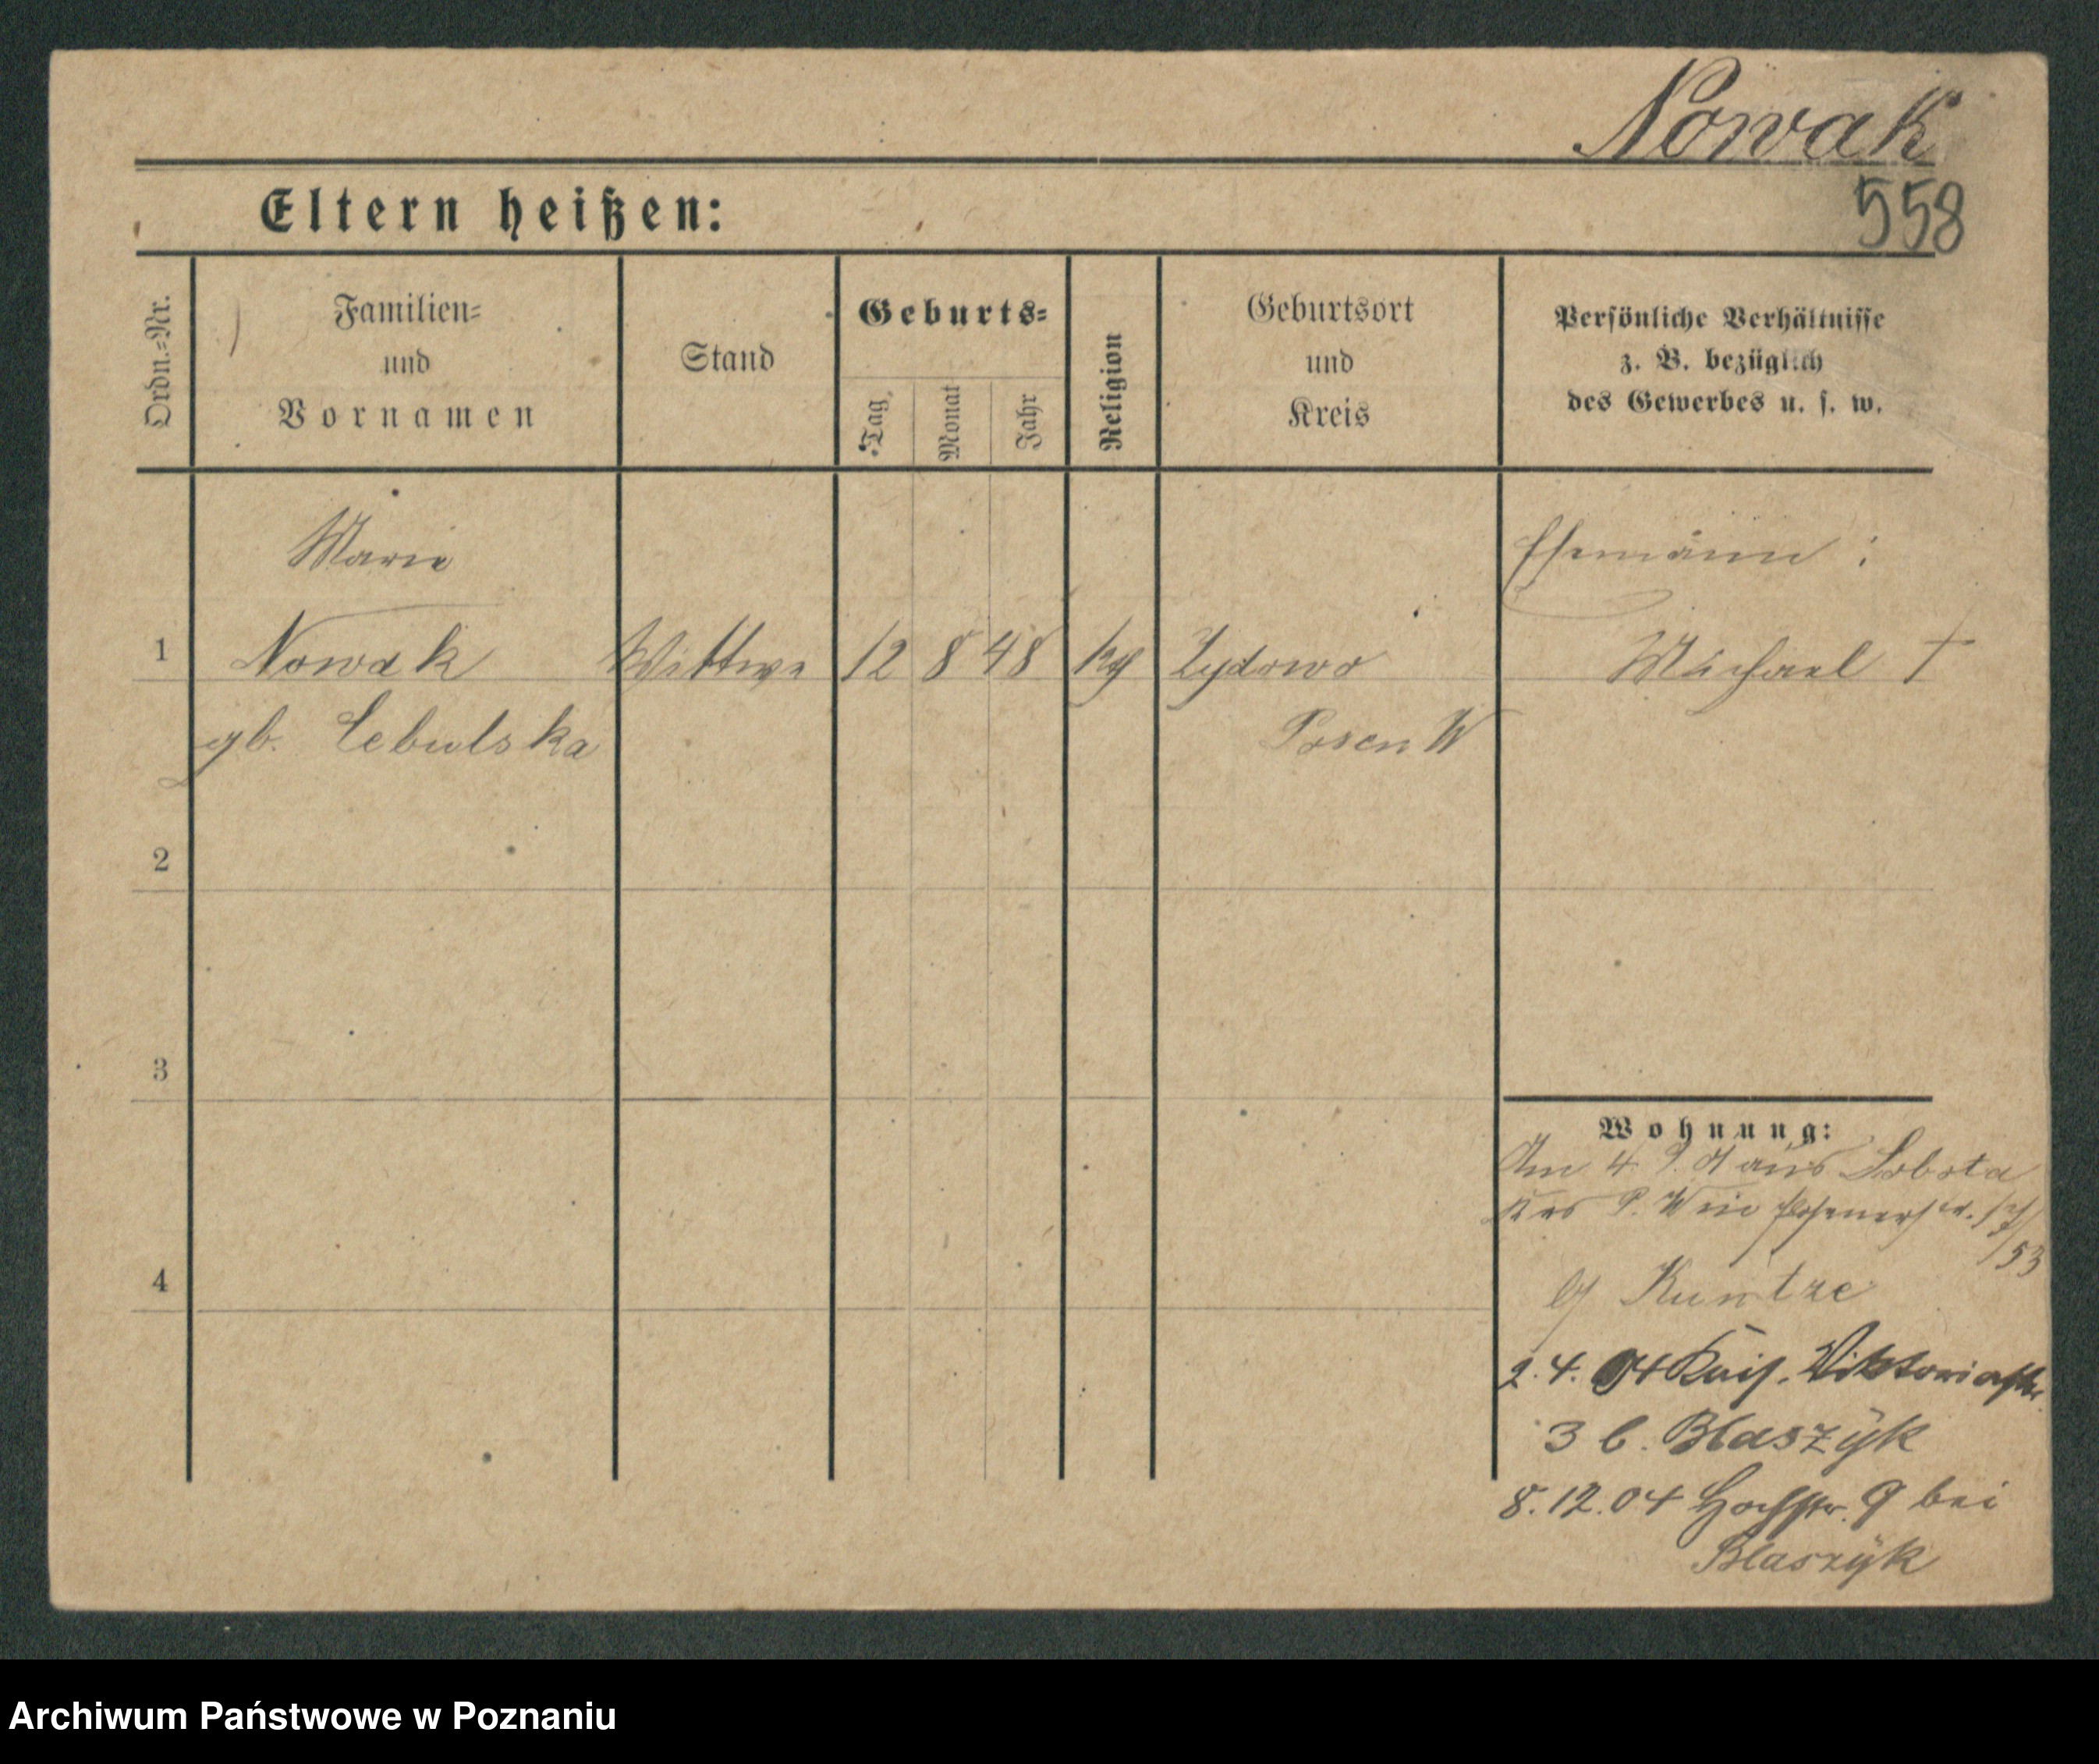 Nowak
558
Eltern heißen:
Ordn.=Nr.
Familien=
und
Vornamen
Stand
Geburts=
Tag
Monat
Jahr
Religion
Geburtsort
und
Kreis
Persönliche Verhältnisse
z. B. bezüglich
des Gewerbes u. s. w.
Marie
Ehemann :
1 Nowak Wittwe 12 8 48 kg Zydowo Michael †
gb. Cebulska
Posen W
2
3
4
Wohnung:
Am 4 9. aus Sobota
Krs P. W
53
Kuntze
2.4.04 Kais. Viktoriastr.
3 b. Blaszÿk
8.12.04 Hochstr. 9 bei
Blaszÿk
Archiwum Państwowe w Poznaniu